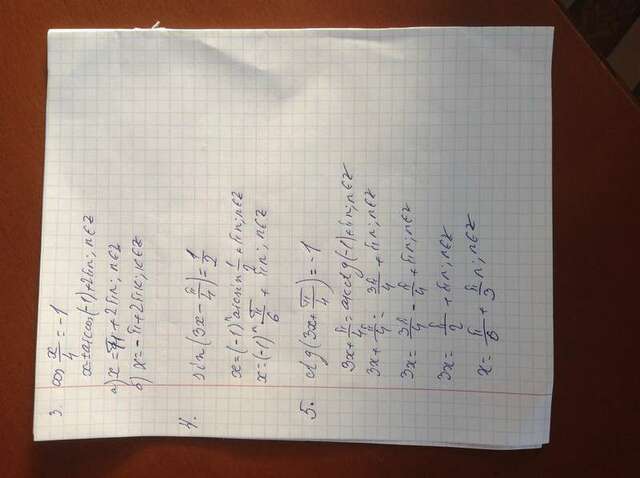 3. cos x/4 = -1
x=±arccos(-1)+2πn; n∈Z
а) x = π + 2πn; n∈Z
б) x = -π+2πк; к∈Z
4. sin(3x - π/4) = 1/2
x=(-1)^n arcsin 1/2 + πn; n∈Z
x=(-1)^n π/6 + πn; n∈Z
5. ctg(3x+ π/4) = -1
3x+ π/4 = arcctg(-1)+πn; n∈Z
3x+ π/4 = 3π/4 + πn; n∈Z
3x= 3π/4 - π/4 + πn; n∈Z
3x= π/2 + πn; n∈Z
x= π/6 + π/3 n; n∈Z